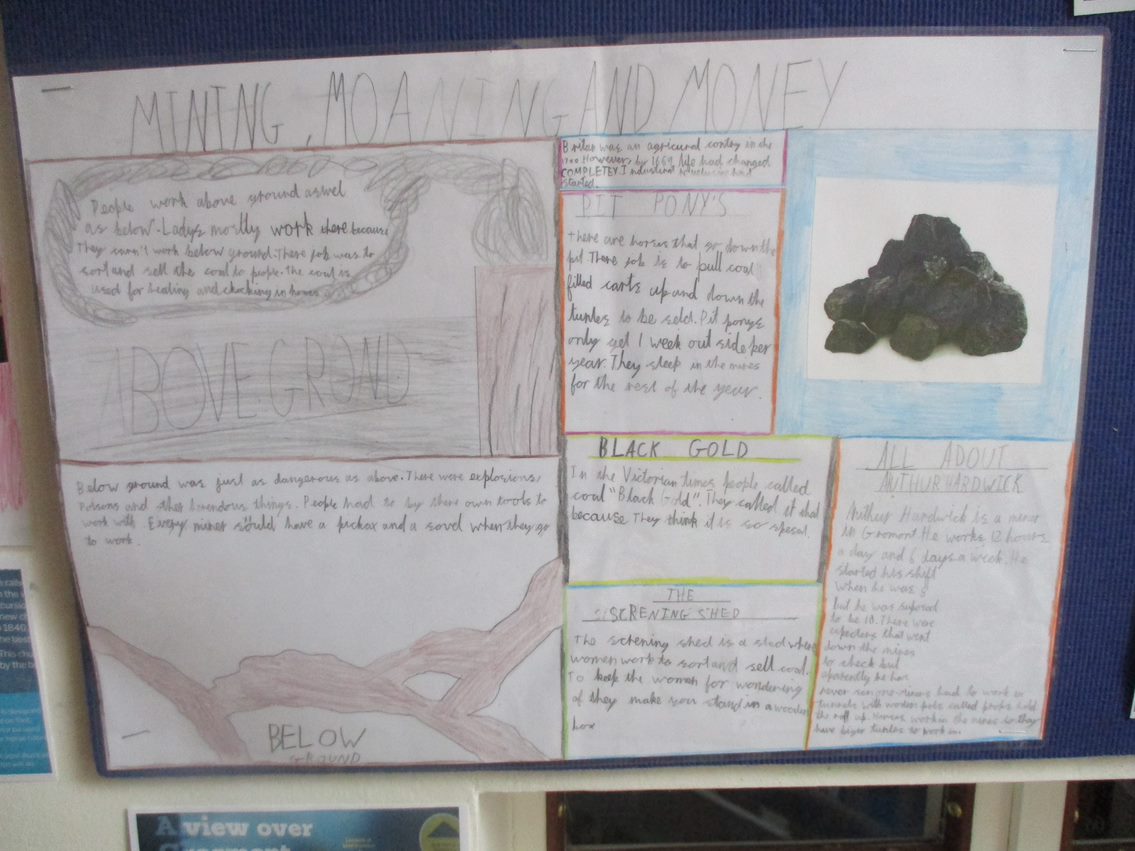 MINING, MOANING AND MONEY
People work above ground aswel
as below. Ladys mostly work there because
They carn't work below ground. There job was to
sort and sell the coal to people. The coal is
used for heating and in homes
ABOVE GROND
Below ground was just as dangerous as above. There were explosions,
Poisons and other things. People had to by there own tools to
work with. Every miner sould have a pickax and a when they go
to work.
BELOW
GROUND
was an in the
1700 However, by life had changed
COMPLETEY. I industrial had
started.
PIT PONY'S
There are horses that go down the
pit. There job is to pull coal
filled carts up and down the
to be sold. Pit ponys
only get 1 week out side per
year. They sleep in the mines
for the rest of the year.
BLACK GOLD
In the Victorian times people called
coal "Black Gold". They called it that
because They think it is so spesal.
THE
SCRENING SHED
The screning shed is a shed where
women work to sort and sell coal.
To keep the woman for wondering
of they make you stand in a wooden
box
ALL ABOUT
AUTHUR HARDWICK
Authur Hardwick is a miner
in Gromont. He works 12 hours
a day and 6 days a week. He
started his shift
when he was
but he was suposed
to be 10. There were
that went
down the mines
to check but
he has
never had to work in
tunnels with wooden called props hold
the up. Horses work in the mines so they
have biger to work in.
A view over